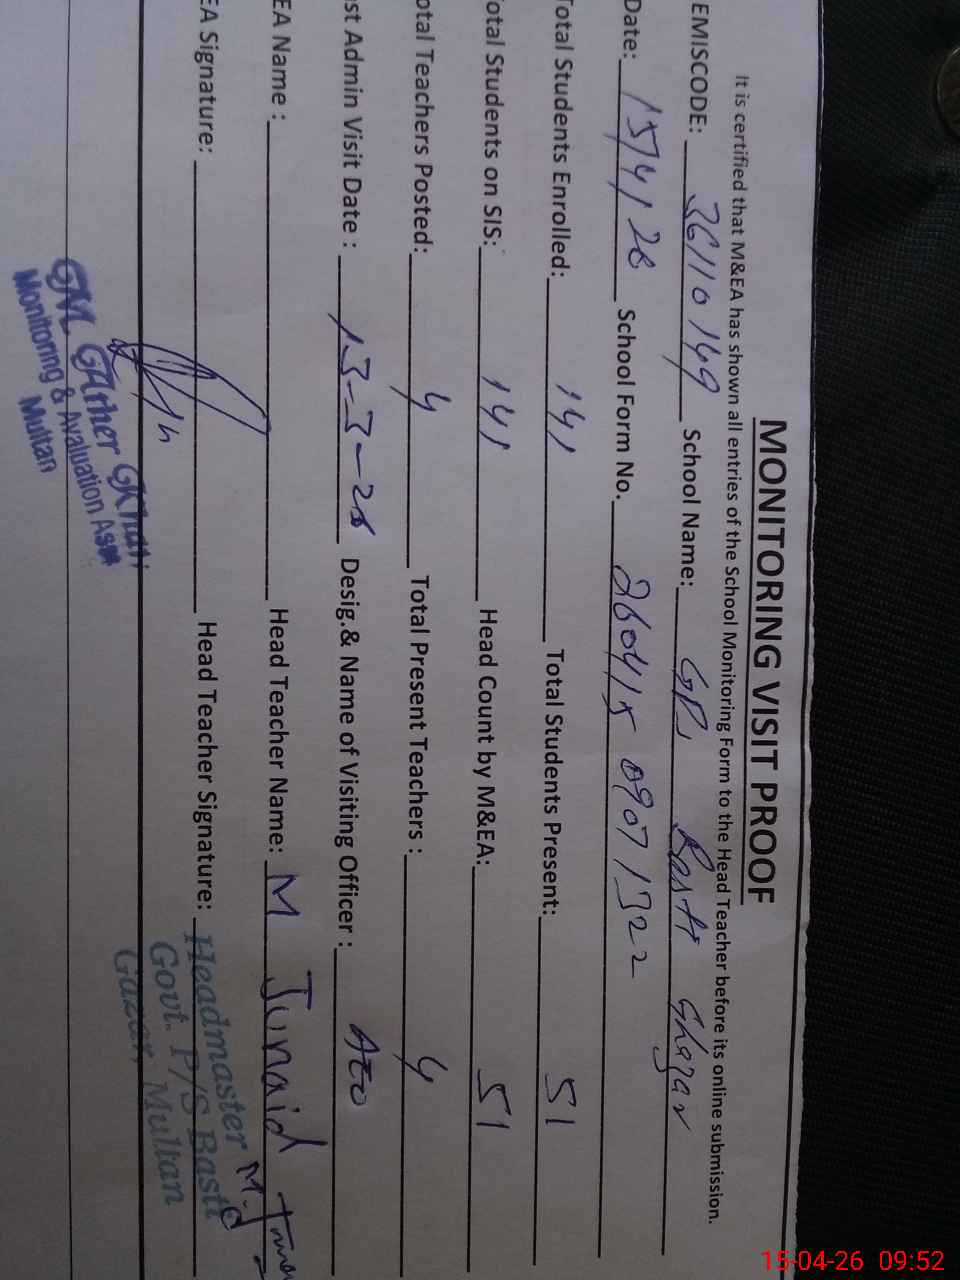 MONITORING VISIT PROOF
It is certified that M&EA has shown all entries of the School Monitoring Form to the Head Teacher before its online submission.
EMISCODE: 36110149 School Name: GPS Basti Ghazar
Date: 15/4/26 School Form No. 260415 0907 1322
Total Students Enrolled: 141 Total Students Present: 51
otal Students on SIS: 141 Head Count by M&EA: 51
otal Teachers Posted: 4 Total Present Teachers : 4
st Admin Visit Date : 13-3-26 Desig.& Name of Visiting Officer : AEO
EA Name : Head Teacher Name: M Junaid
EA Signature: Head Teacher Signature:
Headmaster
Govt. P/S Basti
Multan
Khan
Monitoring & Avaluation
Multan
15-04-26 09:52